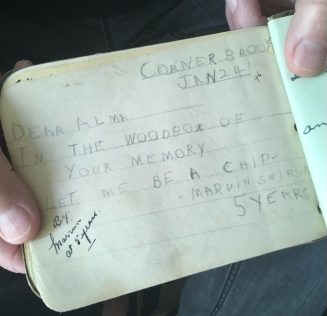 CORNER BROOK
JAN 24
DEAR ALMA
IN THE WOODBOX OF
YOUR MEMORY
LET ME BE A CHIP-
MARVIN
5 YEARS
By.
Marvin
at 5 years.